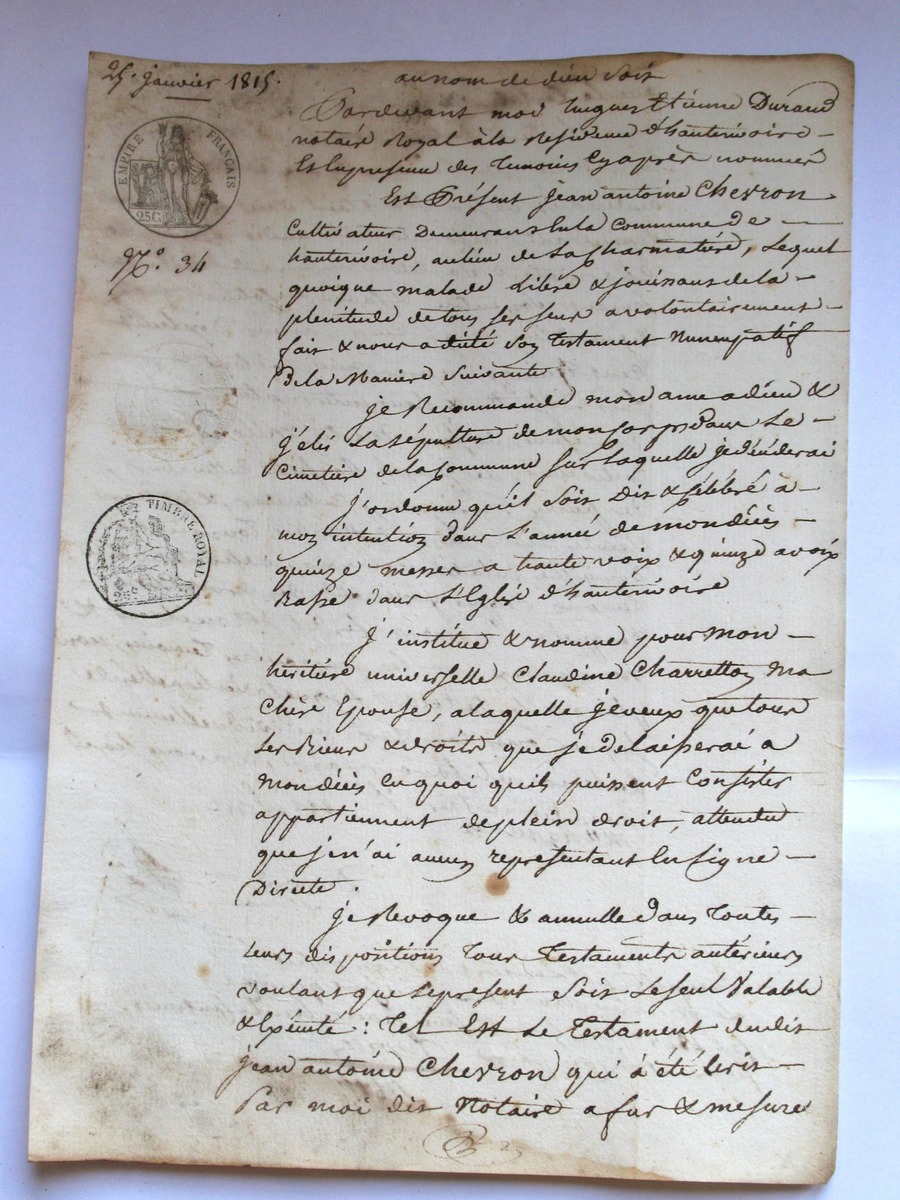 25. janvier 1815.
au nom de dieu soit
EMPIRE FRANÇAIS
25C.
N.° 34
TIMBRE ROYAL
25 C
Pardevant moi hugues Etienne Durand
notaire Royal à la Residence d'hauterivoire –
Et En presence des Temoins Cy après nommés
Est Présent jean antoine Chevron
Cultivateur Demeurant En la Commune De –
hauterivoire, au lieu de La Charmatiere, Lequel
quoique malade Libre & jouissant de la –
plenitude de tous ses sens a volontairement –
fait & nous a dicté Son Testament Nuncupatif
De la Maniere Suivante
je Recommande mon ame a dieu &
j'élis La sépulture de mon Corps dans Le –
Cimetière de la Commune sur Laquelle je déciderai
J'ordonne qu'il Soit Dit & Célébré à –
mon intention dans L'année de mon décès –
quinze messes a haute voix & quinze a voix
Basse dans L'Eglise d'hauterivoire
J'institue & nomme pour mon –
héritière universelle Claudine Charretton ma
Chère Epouse, a laquelle je veux que tous
Les Biens & droits que je delaisserai a
mon décès En quoi qu'ils puissent Consister
appartiennent de plein droit, attendu
que je n'ai aucun représentant En Ligne –
Directe.
je Revoque & annulle dans Toutes –
Leurs dispositions Tous Testaments antérieurs
voulant que Le present Soit Le seul Valable
& Exécuté : Tel Est Le Testament dudit
jean antoine Chevron qui à été Ecrit –
Par moi dit Notaire a fur & mesure